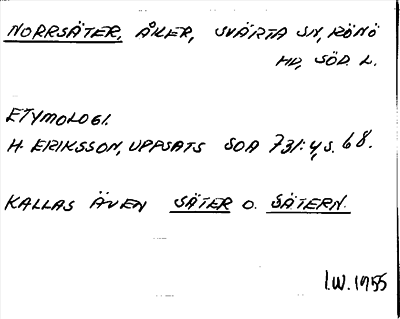 NORRSÄTER, ÅKER, SVÄRTA SN, RÖNÖ
HD, SÖD. L.
ETYMOLOGI.
H. ERIKSSON, UPPSATS SOA 731:4, S. 68.
KALLAS ÄVEN SÄTER O. SÄTERN.
I.W. 1955